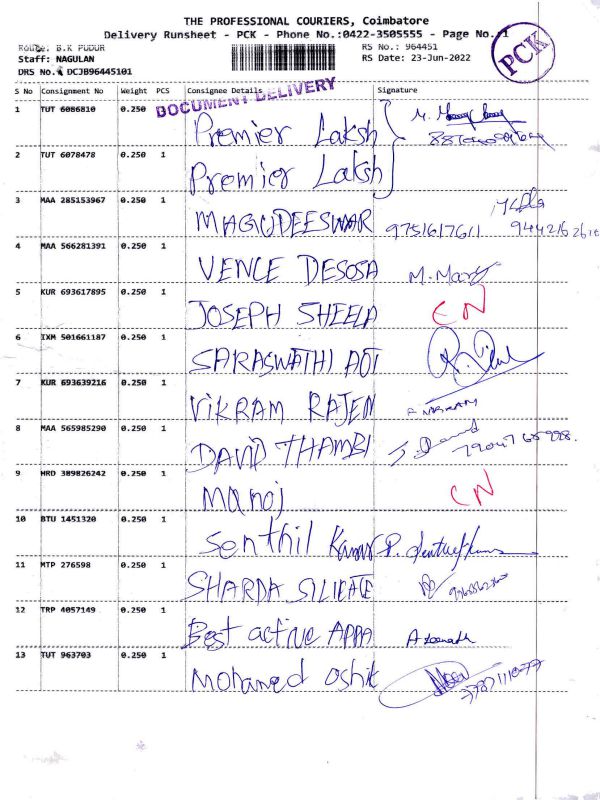 THE PROFESSIONAL COURIERS, Coimbatore
Delivery Runsheet - PCK - Phone No.:0422-3505555 - Page No. 1
PCK
Route: B.K PUDUR
RS No.: 964451
Staff: NAGULAN
RS Date: 23-Jun-2022
DRS No. DCJB96445101
S No Consignment No Weight PCS Consignee Details Signature
DOCUMENT DELIVERY
1 TUT 6086810 0.250 Premier Laksh
2 TUT 6078478 0.250 1 Premier Laksh
3 MAA 285153967 0.250 1 MAGUDEESWAR 9751617611
4 MAA 566281391 0.250 1 VENCE DESOSA
5 KUR 693617895 0.250 1 JOSEPH SHEELA CN
6 IXM 501661187 0.250 1 SARASWATHI AOI
7 KUR 693639216 0.250 1 VIKRAM RAJEN
8 MAA 565985290 0.250 1 DAVID THAMBI
9 HRD 389826242 0.250 1 Manoj CN
10 BTU 1451320 0.250 1 Senthil Kumar
11 MTP 276598 0.250 1 SHARDA SILICATE
12 TRP 4057149 0.250 1 Best active APPA
13 TUT 963703 0.250 1 Mohamed Oshik